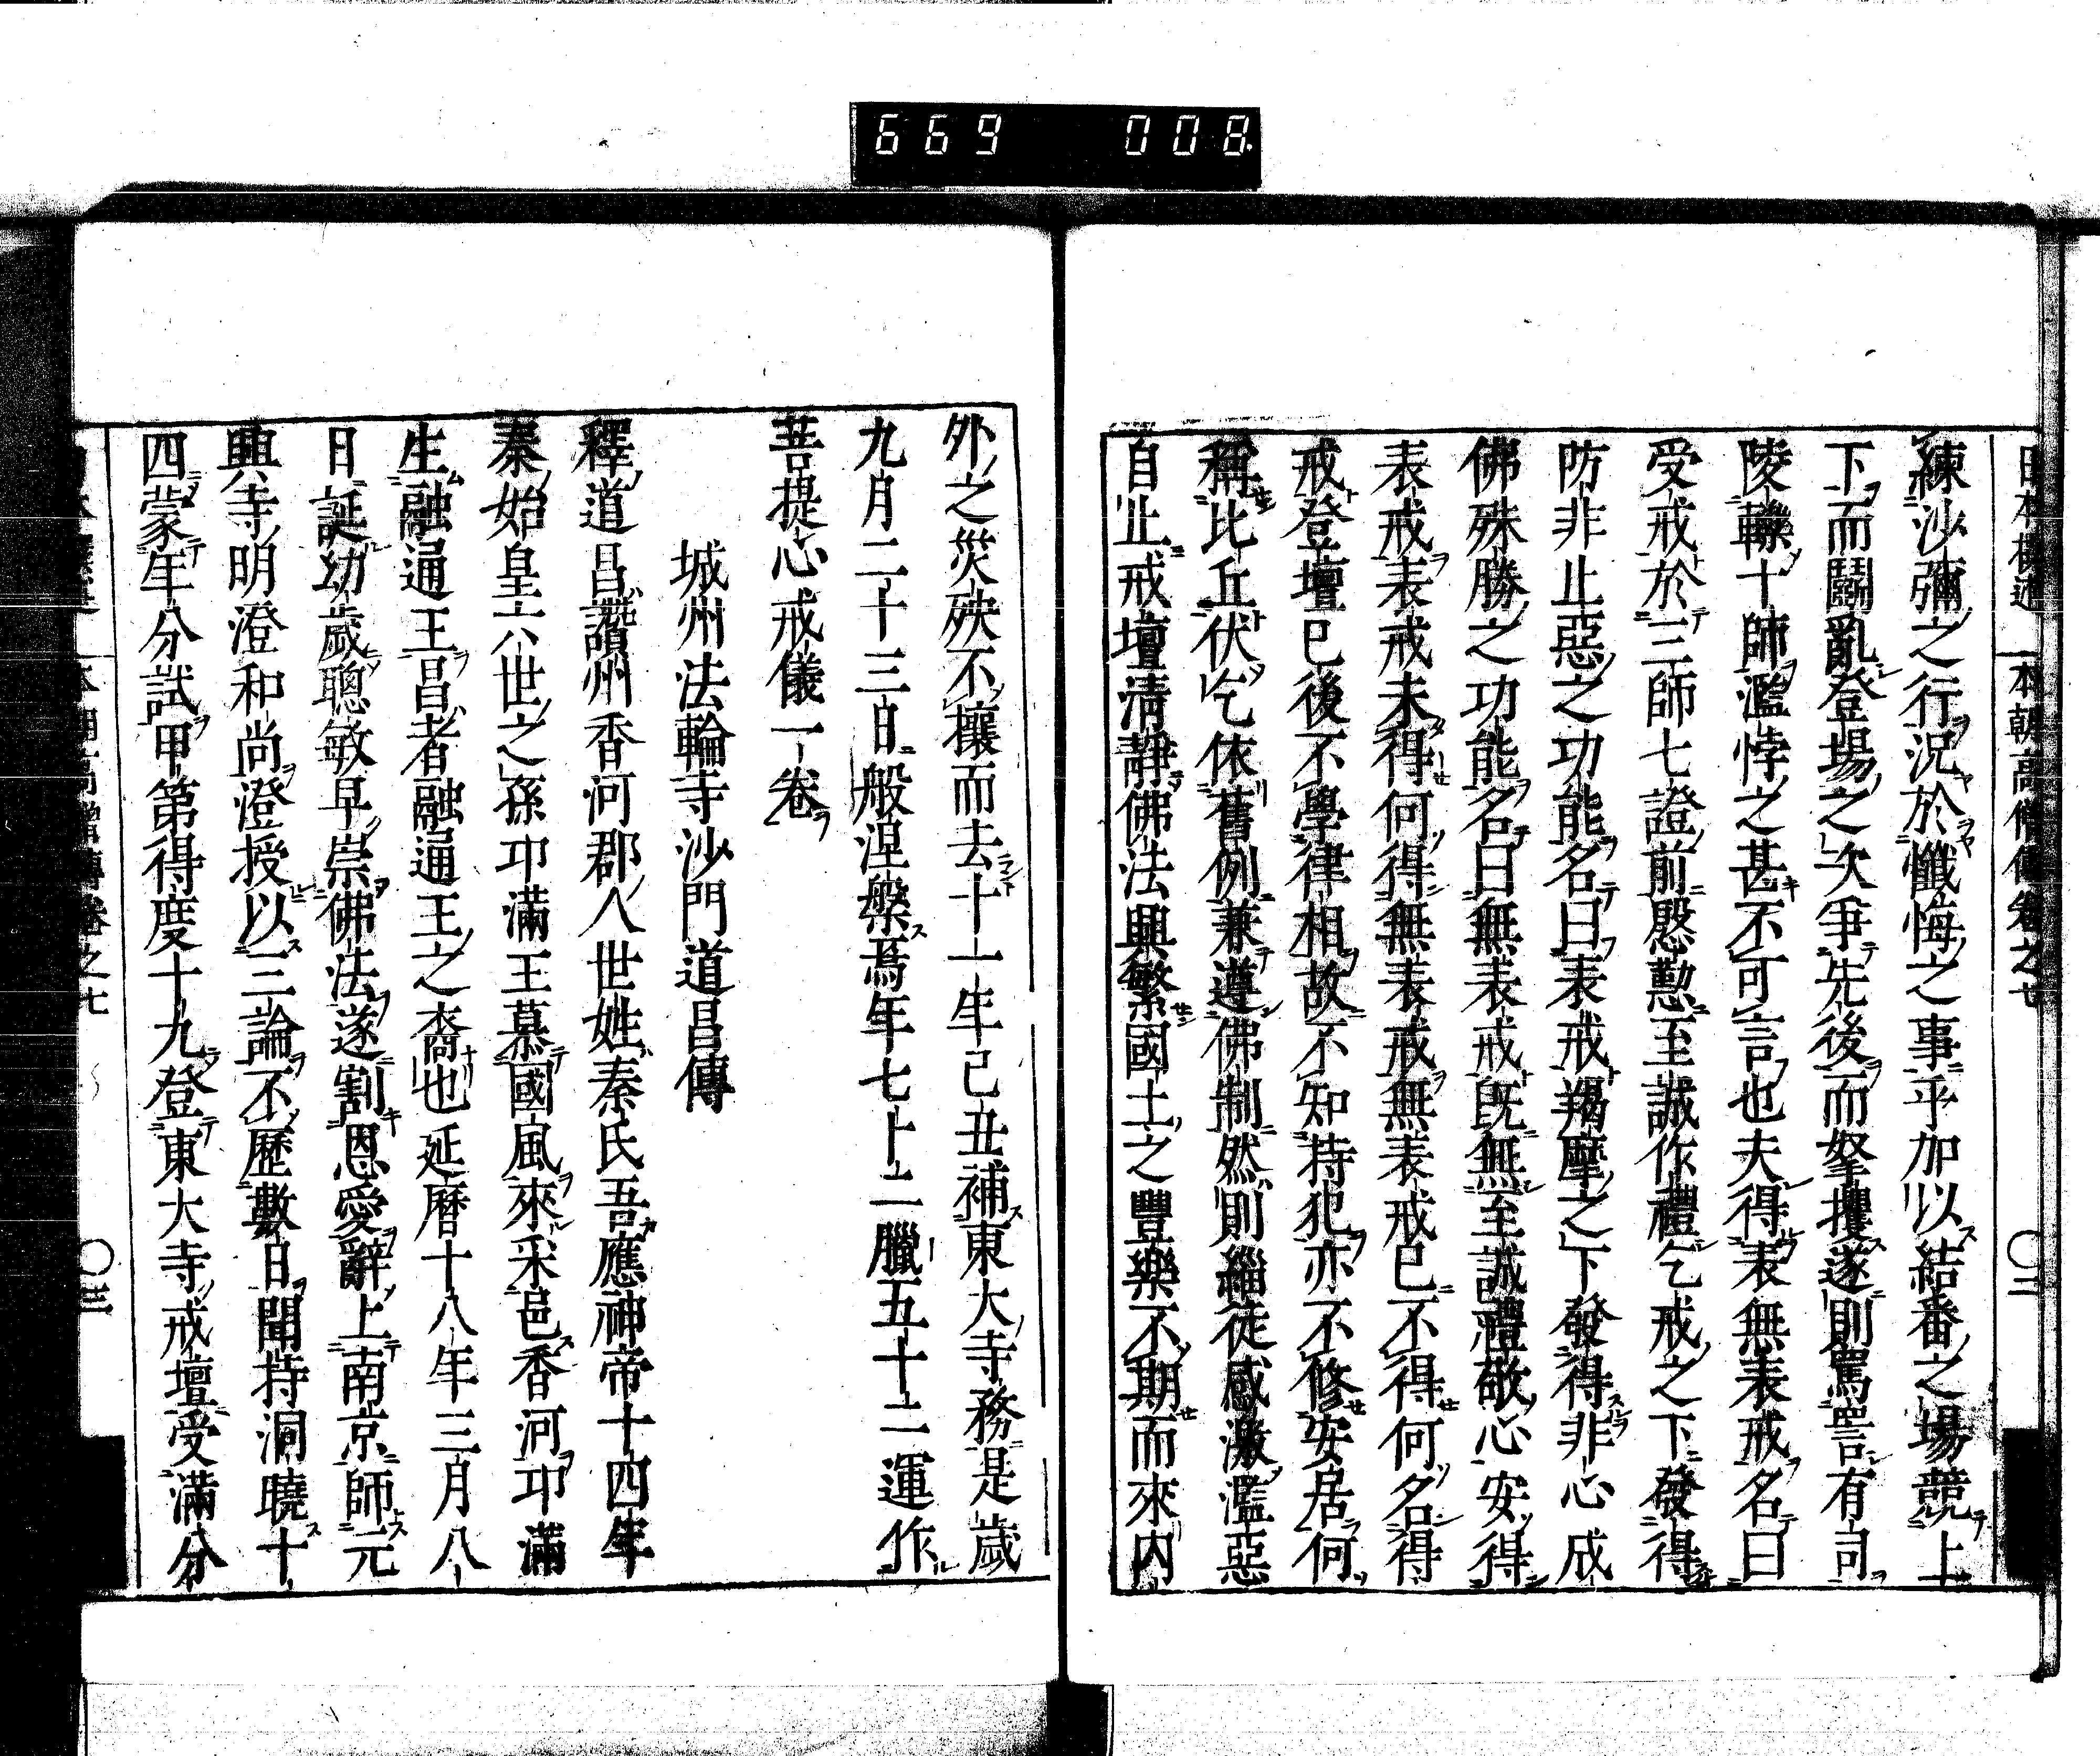 669 008
本朝高僧傳卷之七 〇二
練沙彌之行況於懺悔之事乎加以結番之場競上
下而鬪亂登場之次爭先後而拏攫遂則罵詈有司
陵轢十師濫悖之甚不可言也夫得表無表戒名曰
受戒於三師七證前慇懃至誠作禮乞戒之下發得
防非止惡之功能名曰表戒羯摩之下發得非心成
佛殊勝之功能名曰無表戒既無至誠禮敬心安得
表戒表戒未得何得無表戒無表戒已不得何名得
戒登壇已後不學律相故不知持犯亦不修安居何
稱比丘伏乞依舊例兼遵佛制然則緇徒感激濫惡
自止戒壇淸靜佛法興繁國土之豐樂不期而來內
外之災殃不攘而去十一年己丑補東大寺務是歲
九月二十三日般涅槃焉年七十二臘五十二運作
菩提心戒儀一卷
城州法輪寺沙門道昌傳
釋道昌讚州香河郡人世姓秦氏吾應神帝十四年
秦始皇六世之孫功滿王慕國風來采邑香河功滿
生融通王昌者融通王之裔也延曆十八年三月八
日誕幼歲聰敏早崇佛法遂割恩愛辭上南京師元
興寺明澄和尚澄授以三論不歷數日聞持洞曉十
四蒙年分試甲第得度十九登東大寺戒壇受滿分
卷之七 〇三